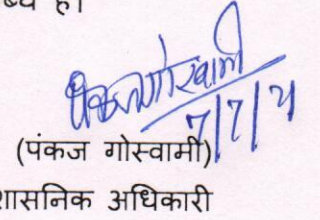 ब्ध है।
पंकज गोस्वामी
7/7/21
(पंकज गोस्वामी)
शासनिक अधिकारी